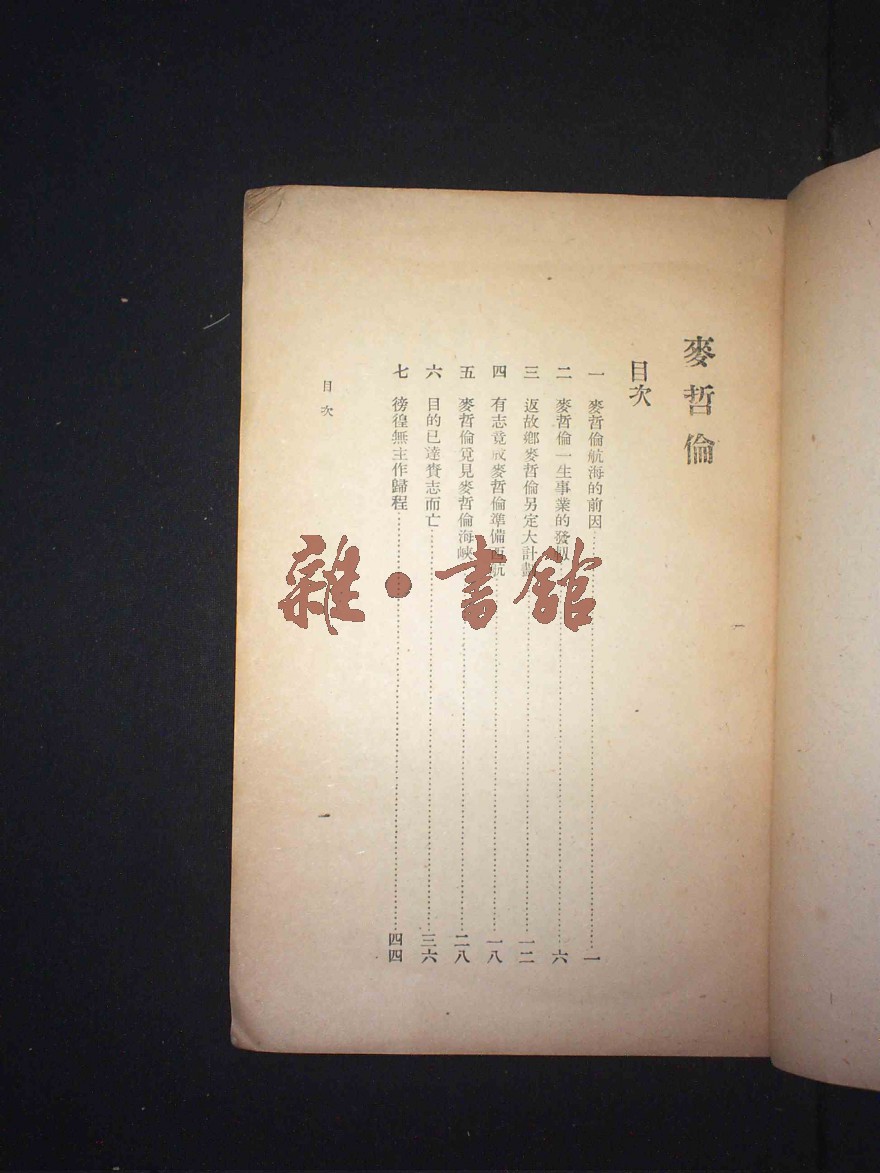 麥哲倫
目次
一 麥哲倫航海的前因……一
二 麥哲倫一生事業的發軔……六
三 返故鄉麥哲倫另定大計劃……一二
四 有志竟成麥哲倫準備西航……一八
五 麥哲倫覓見麥哲倫海峽……二八
六 目的已達賫志而亡……三六
七 徬徨無主作歸程……四四
目次
一
雜·書館